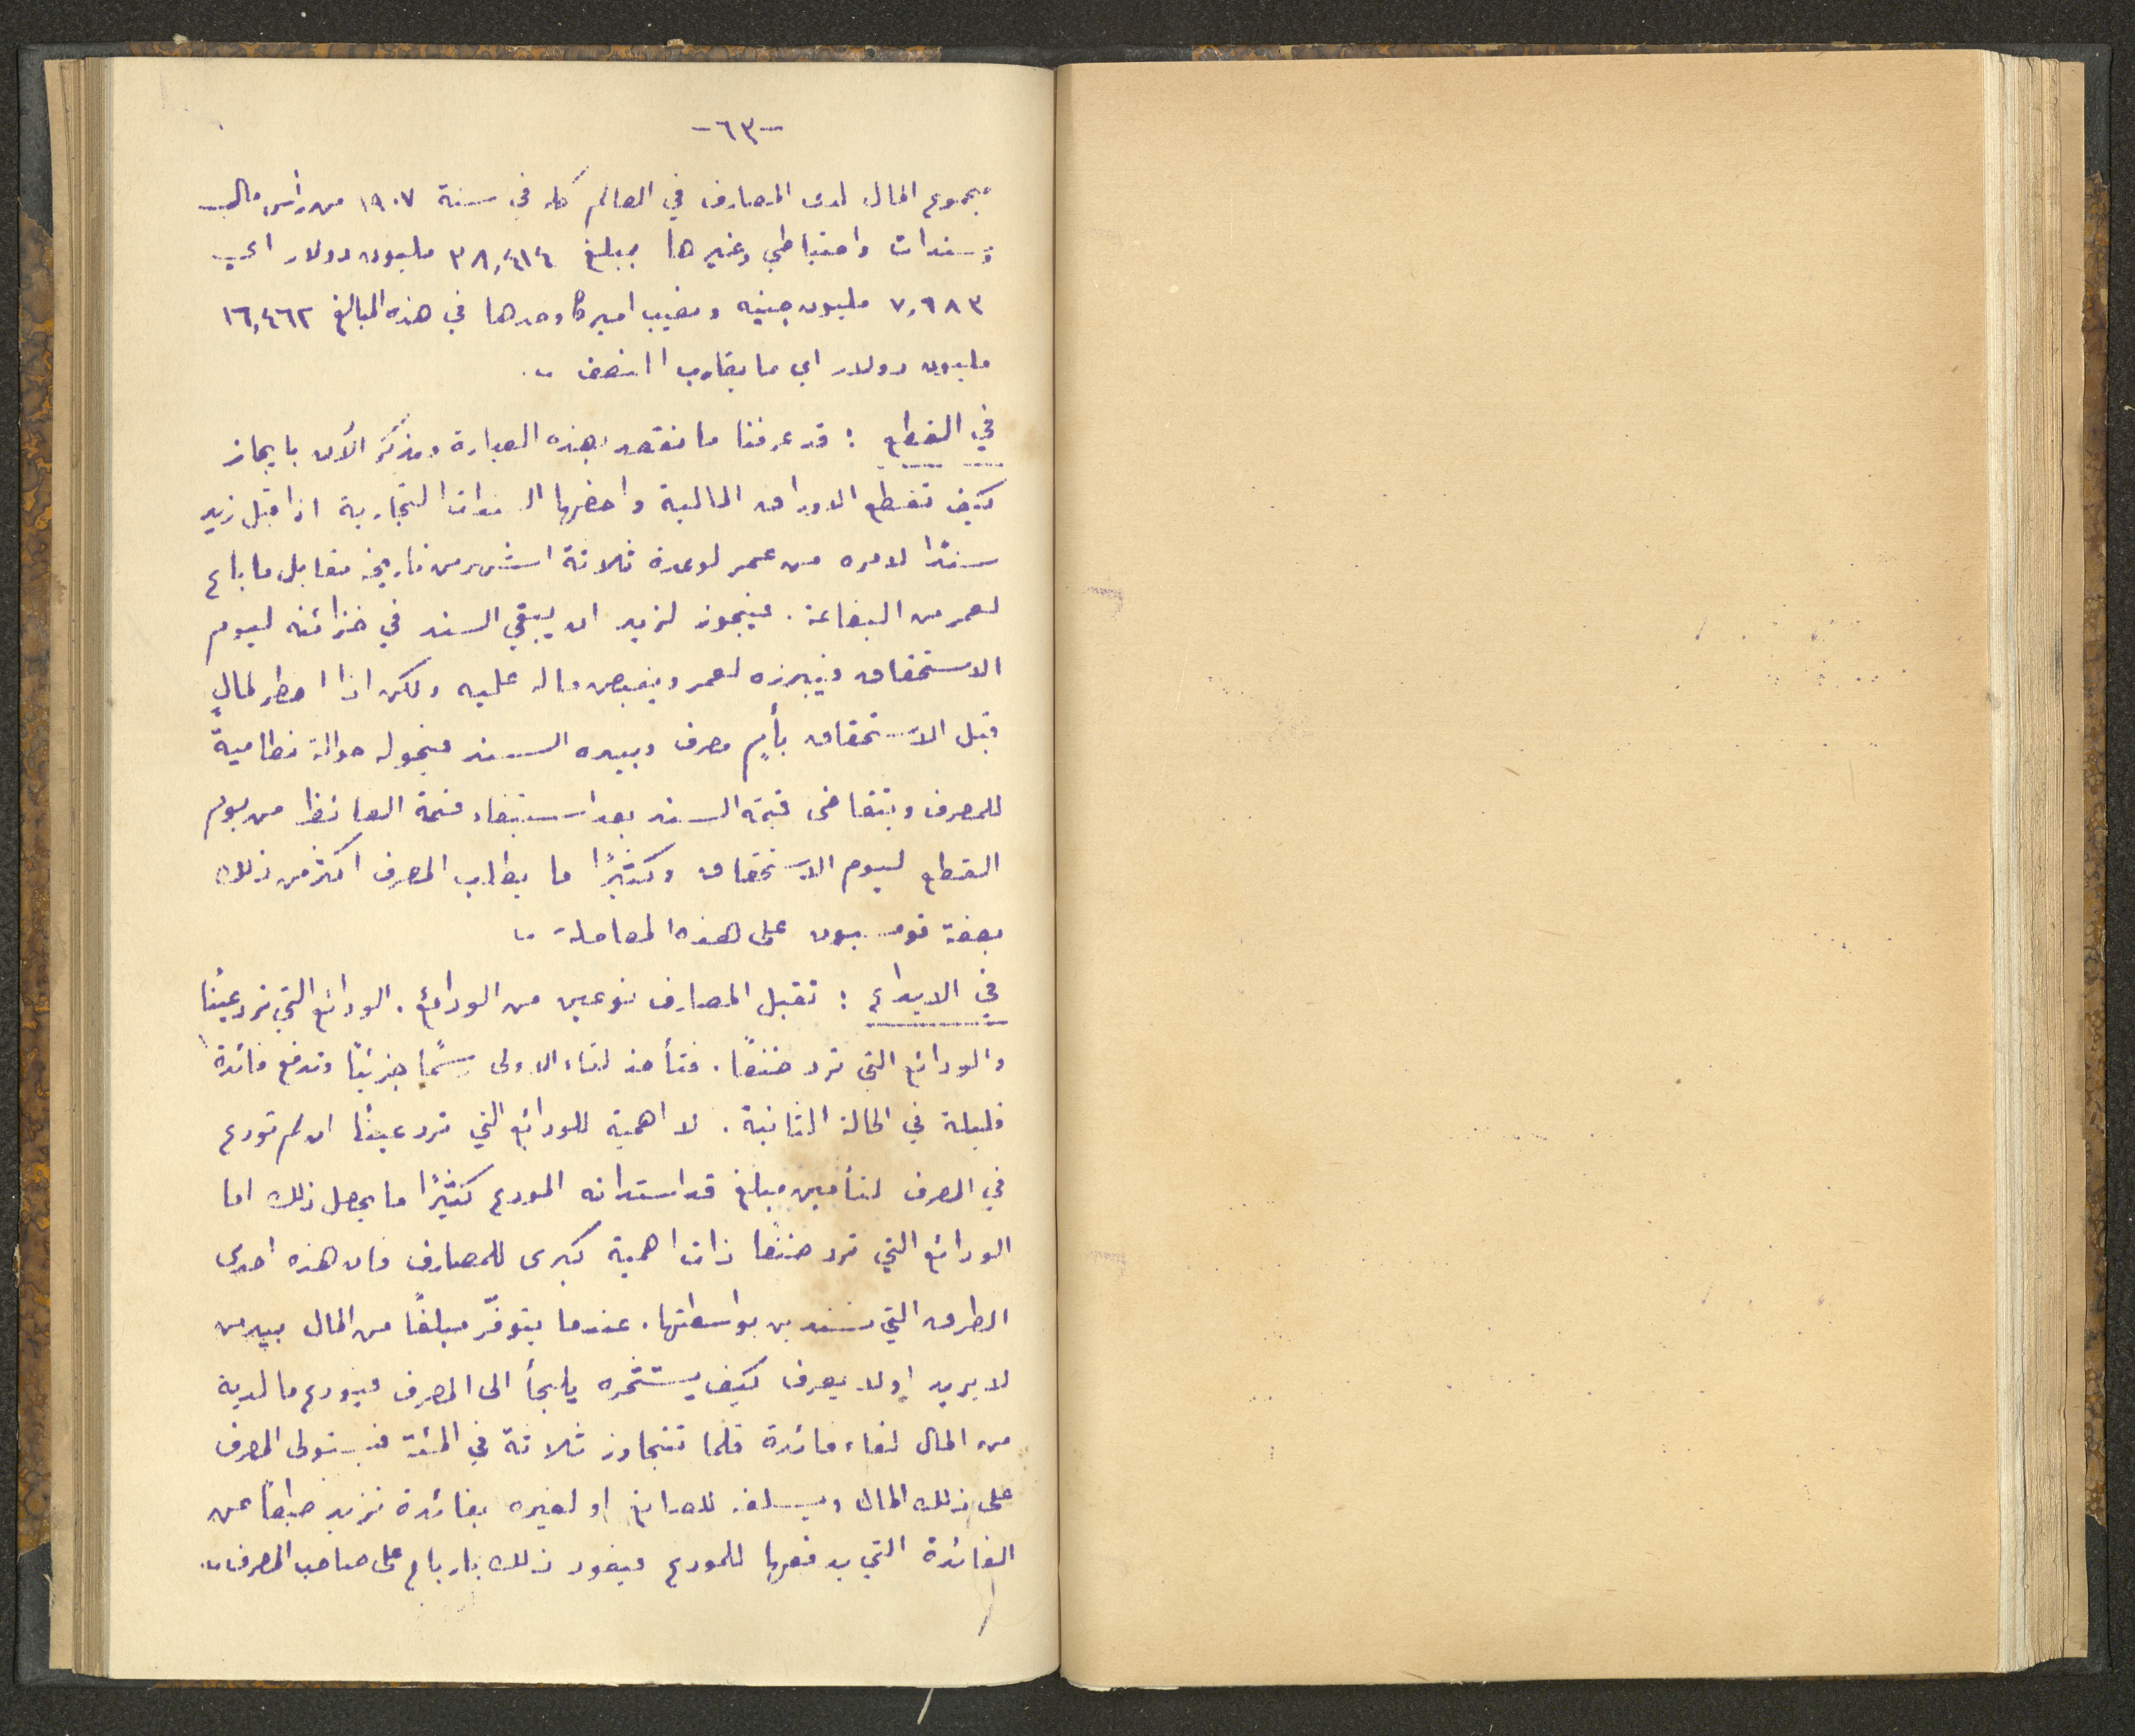 -٦٣-
مجموع المال لدى المصارف في العالم كله في سنة ١٩٠٧ من رأس مال
وسندات واحتياطي وغيرها بمبلغ ٣٨,٤١٤ مليون دولار اي
٧,٦٨٣ مليون جنيه ونصيب اميركا وحدها في هذه المبالغ ١٦,٤٦٢
مليون دولار اي ما يقارب النصف ..
في القطع : قد عرفنا ما نقصد بهذه العبارة ونذكر الآن بايجاز
كيف تقطع الاوراق المالية واخصها السندات التجارية اذا قبل زيد
سندًا لامره من عمر لوعدة ثلاثة اشهر من تاريخه مقابل ما باع
لعمر من البضاعة . فيجوز لزيد ان يبقي السند في خزائنه ليوم
الاستحقاق فيبرزه لعمر ويقبض ماله عليه ولكن اذا اضطر لمالٍ
قبل الاستحقاق يأتي مصرف وبيده السند فيحوله حوالة نظاميةً
للمصرف ويتقاضى قيمة السند بعد استيفاء قيمة الفائظ من يوم
القطع ليوم الاستحقاق وكثيرًا ما يطلب المصرف اكثر من ذلك
بصفة قومسيون على هذه المعاملة ..
في الايداع : تقبل المصارف نوعين من الودائع . الودائع التي ترد عينًا
والودائع التي ترد صنفًا . فتأخذ لقاء الاولى رسمًا جزئيًا وتدفع فائدة
قليلة في الحالة الثانية . لا اهمية للودائع التي ترد عينًا ان لم تودع
في المصرف لتأمين مبلغ قد استدانه المودع كثيرًا ما يحصل ذلك اما
الودائع التي ترد صنفًا ذات اهمية كبرى للمصارف فان هذه احدى
الطرق التي تستدين بواسطتها . عندما يتوفّر مبلغًا من المال بيد من
لا يريد او لا يعرف كيف يستثمره يلجأ الى المصرف فيودع ما لديه
من المال لقاء فائدة قلما تتجاوز ثلاثة في المئة فيستولى المصرف
على ذلك المال ويسلفه للصانع او لغيره بفائدة تزيد طبعًا عن
الفائدة التي يدفعها للمودع فيعود ذلك بارباح على صاحب المصرف ..